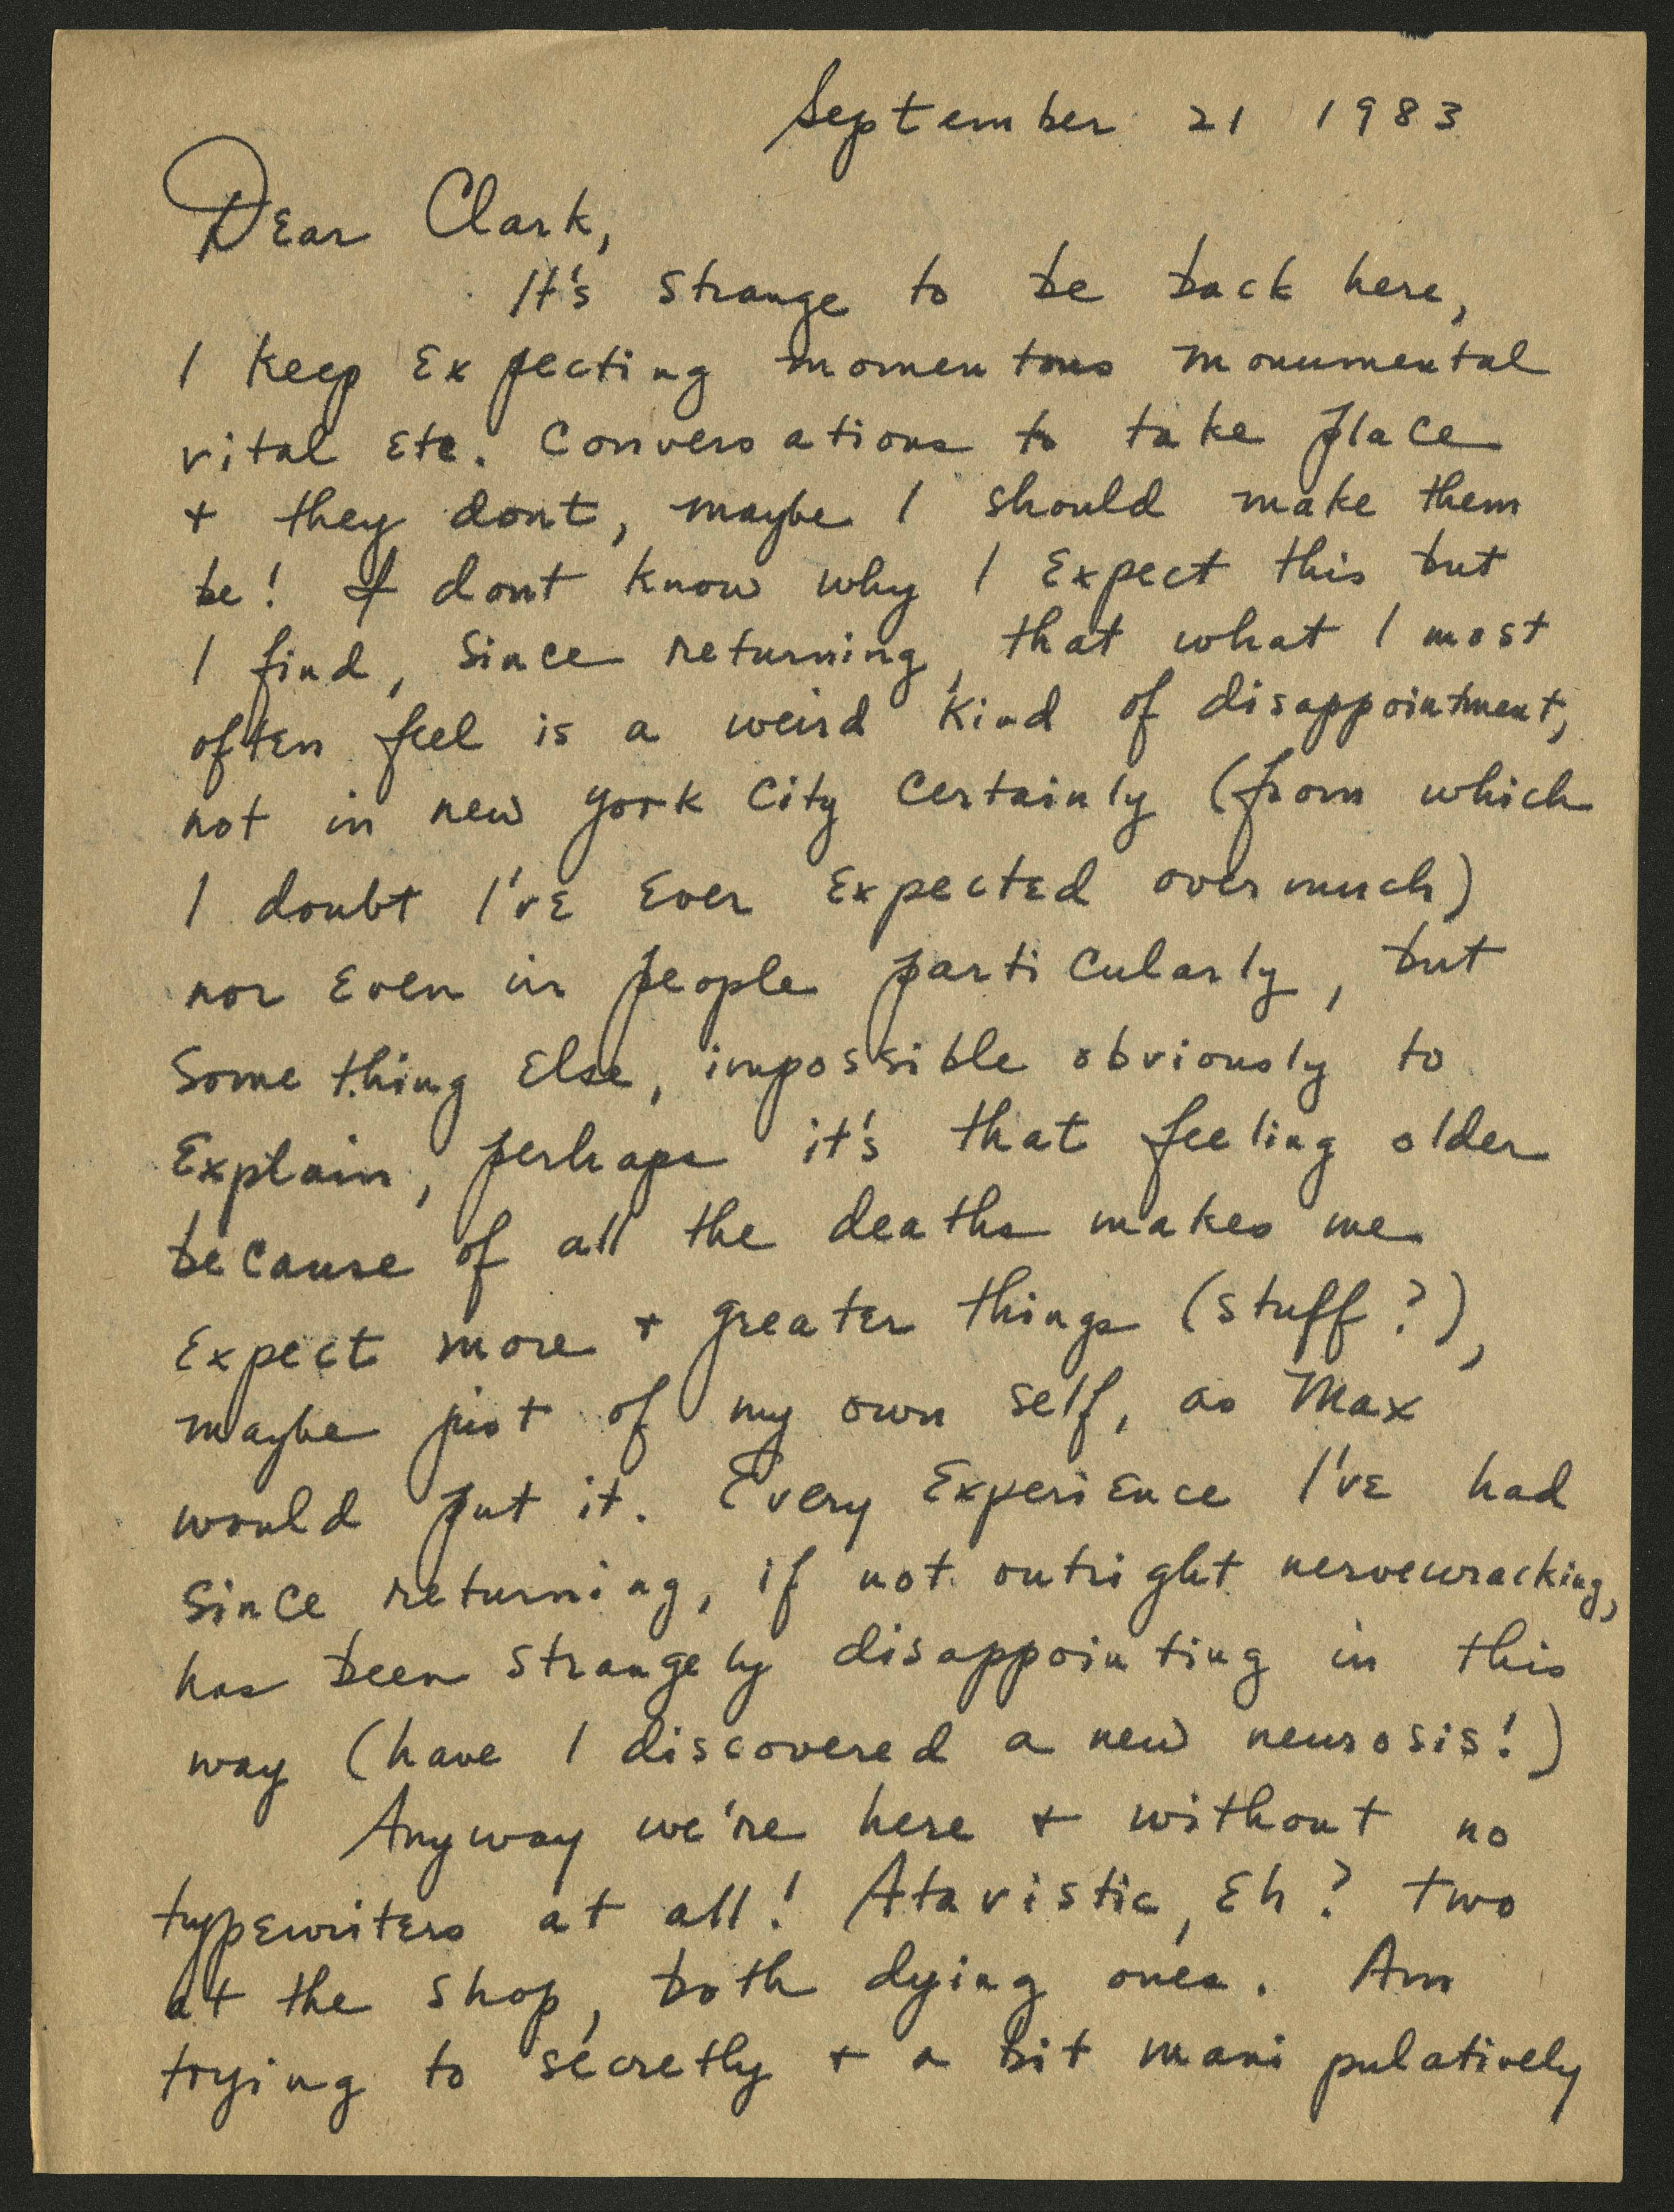 September 21 1983
Dear Clark,
It's strange to be back here,
I keep expecting momentous monumental
vital etc. conversations to take place
+ they dont, maybe I should make them
be! I dont know why I expect this but
I find, since returning, that what I most
often feel is a weird kind of disappointment,
not in new york city certainly (from which
I doubt I've ever expected overmuch)
nor even in people particularly, but
something else, impossible obviously to
explain, perhaps it's that feeling older
because of all the deaths makes me
expect more + greater things (stuff?),
maybe just of my own self, as Max
would put it. Every experience I've had
since returning, if not outright nervewracking,
has been strangely disappointing in this
way (have I discovered a new neurosis!)
Anyway we're here + without no
typewriters at all! Atavistic, eh? two
at the shop, both dying ones. Am
trying to secretly + a bit manipulatively